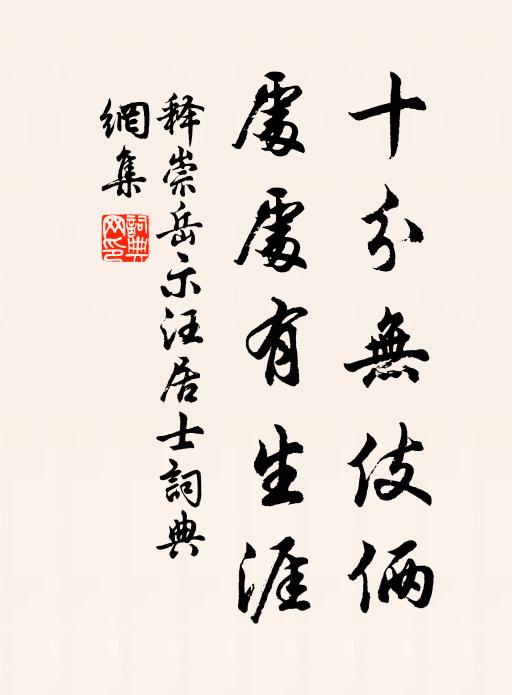 十分無伎倆
處處有生涯
释崇岳示汪居士詞典
網集
詞典
网印